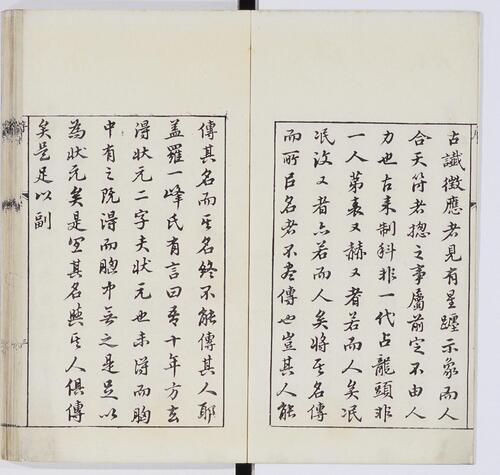 古讖徵應者見有星躔示象而人
合天符者揔之事屬前定不由人
力也古来制科非一代占龍頭非
一人第袞々赫々者若而人矣泯
泯汶々者亦若而人矣將其名傳
而所以名者不盡傳也豈其人能
傳其名而其名終不能傳其人耶
盖羅一峰氏有言曰吾十年方去
得狀元二字夫狀元也未得而胸
中有之既得而胸中無之是足以
為狀元矣是宜其名與其人俱傳
矣是足以副